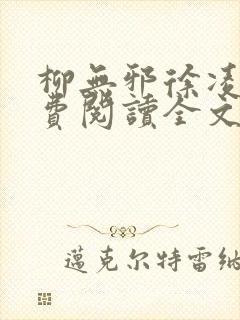 柳無邪徐凌
費閱讀全文
邁克尔特雷納